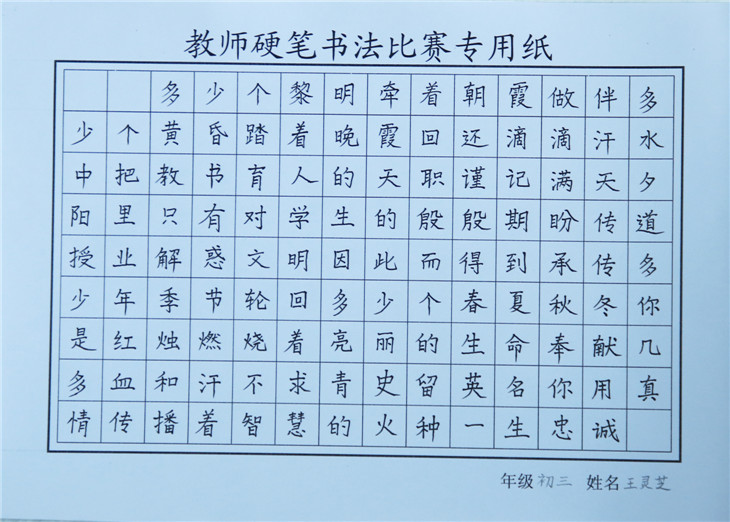 教师硬笔书法比赛专用纸
多少个黎明牵着朝霞做伴多
少个黄昏踏着晚霞回还滴滴汗水
中把教书育人的天职谨记满天夕
阳里只有对学生的殷殷期盼传道
授业解惑文明因此而得到承传多
少年季节轮回多少个春夏秋冬你
是红烛燃烧着亮丽的生命奉献几
多血和汗不求青史留英名你用真
情传播着智慧的火种一生忠诚
年级初三 姓名王灵芝